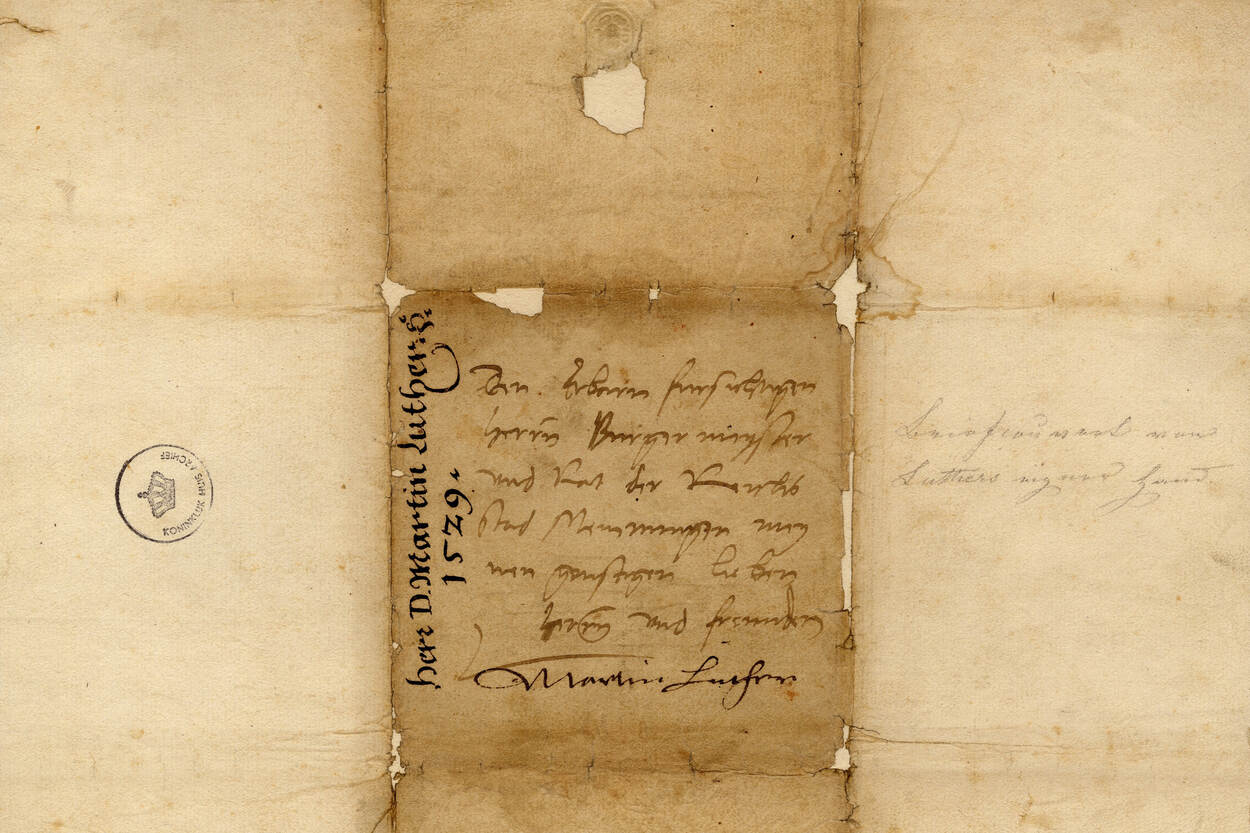 herr D. Martin Luther:
1529.
Den Erbarn fursichtigen
herrn Burgermeyster
und Rat der Reichs
stad Memmingen mey
nen gonstigen lieben
herrn und freunden
Martin Luther
Briefcouvert von
Luthers eigner Hand
KONINKLIJK HUIS ARCHIEF